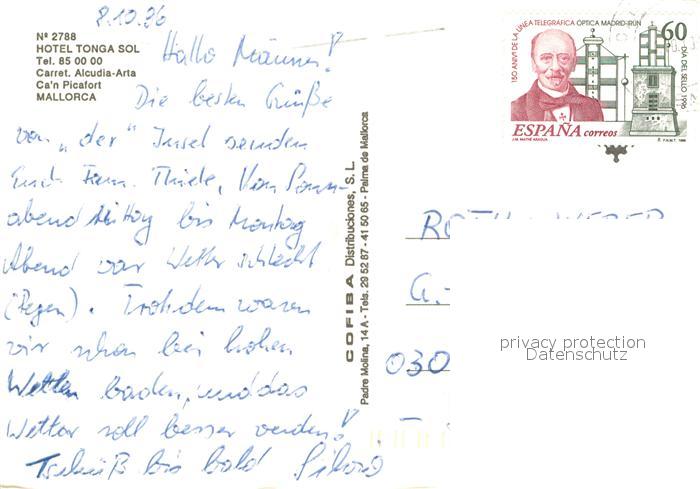 8.10.96
Nº 2788
HOTEL TONGA SOL
Tel. 85 00 00
Carret. Alcudia-Arta
Ca'n Picafort
MALLORCA
Hallo Männer!
Die besten Grüße
von "der" Insel senden
Euch Fam. Thiele, Von Sonn-
abend Mittag bis Montag
Abend war Wetter schlecht
(Regen). Trotzdem waren
wir schon bei hohen
Wellen baden, und das
Wetter soll besser werden!
Tschüß bis bald
COFIBA Distribuciones, S.L.
Padre Molina, 14 A - Tels. 29 52 87 - 41 50 65 - Palma de Mallorca
150 ANIV. DE LA LINEA TELEGRAFICA OPTICA MADRID-IRUN
60
DIA DEL SELLO 1996
ESPAÑA correos
J.M. MATHÉ ARAGUA
F.N.M.T. 1996
G.-
030
privacy protection
Datenschutz